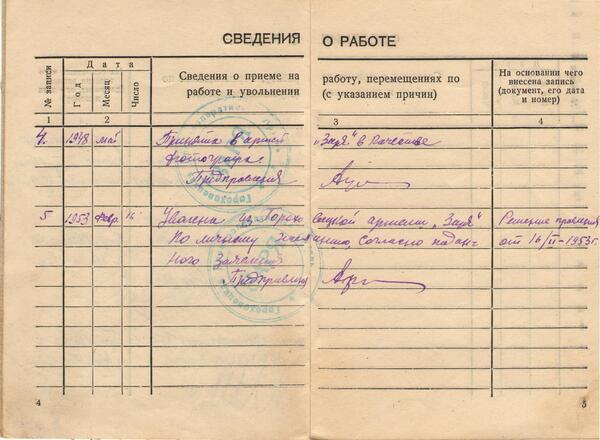 СВЕДЕНИЯ О РАБОТЕ
№ записи
Дата
Год
Месяц
Число
Сведения о приеме на работу, перемещениях по
работе и увольнении (с указанием причин)
На основании чего
внесена запись
(документ, его дата
и номер)
1 2 3 4
4. 1948 май Принята в артель „Заря" в качестве
фотографа
Предправления
5 1953 февр. 16 Уволена из Горохо вецкой артели „Заря" Решение правления
по личному желанию согласно подан- от 16/II-1953г.
ного Заявления
Предправления
4 5